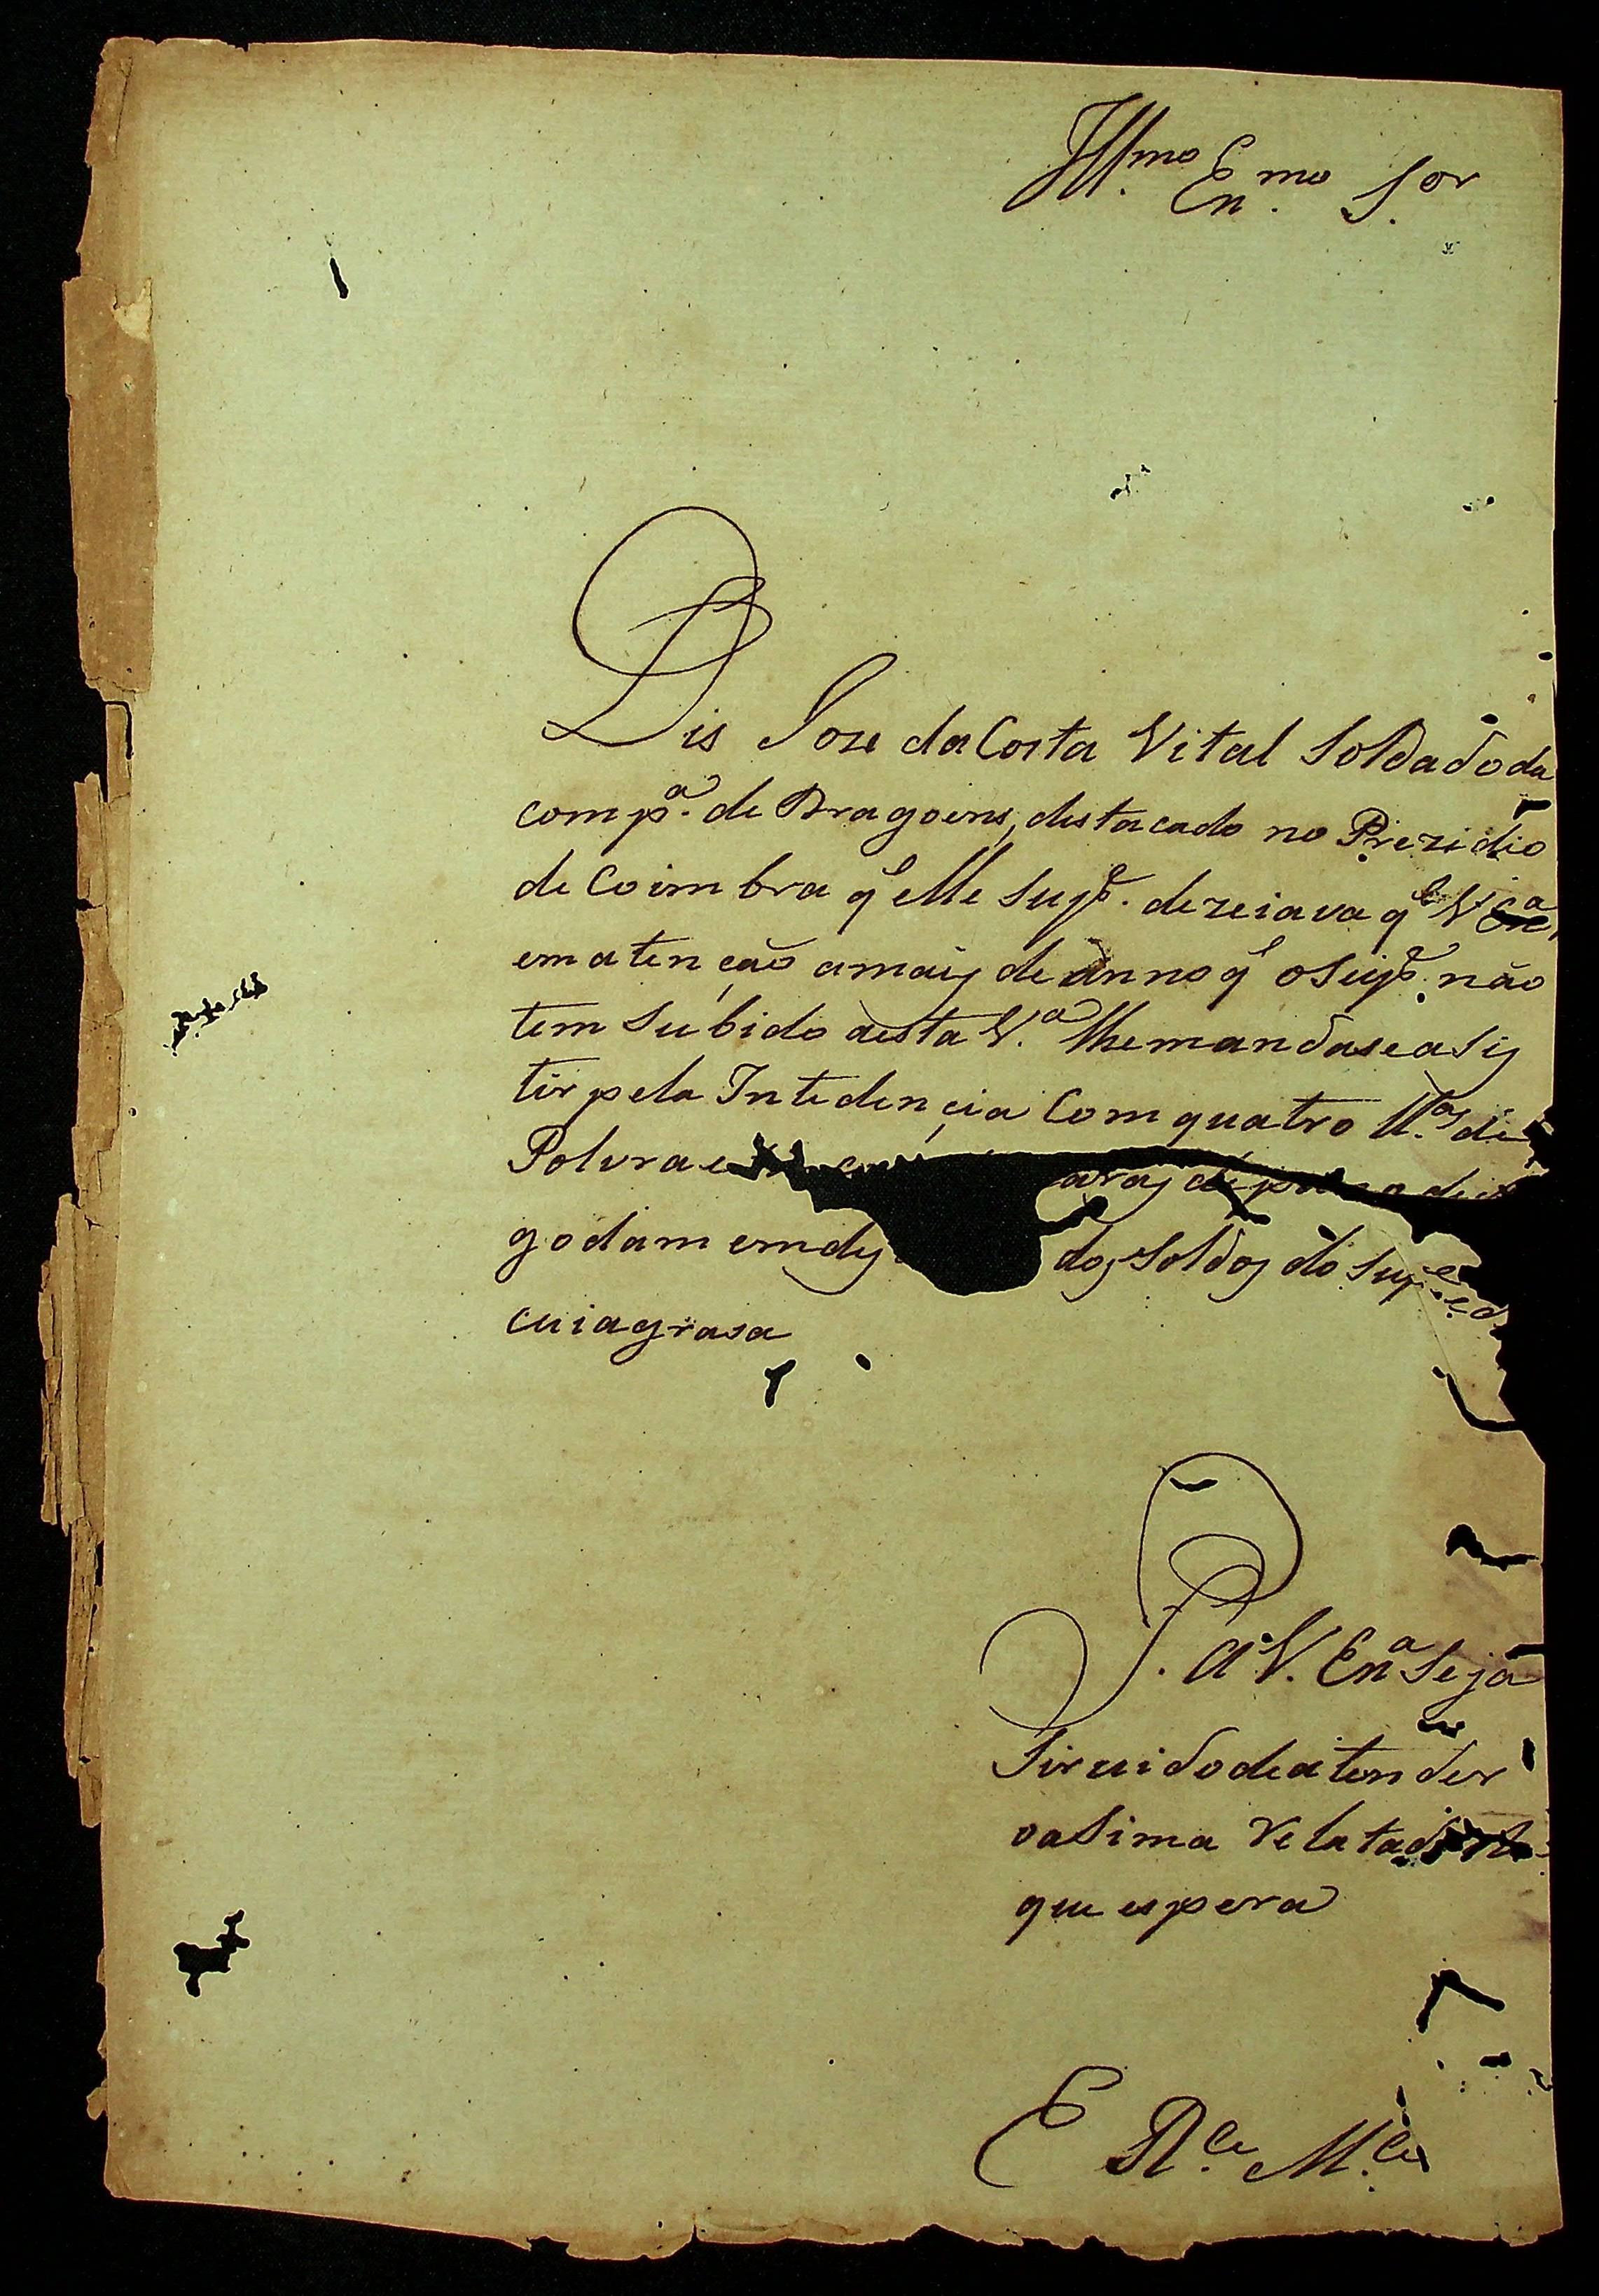 Ill.mo En.mo S.or
Dis Joze da Costa Vital Soldado da
comp.a de Dragoens, destacado no Prezidio
de Coimbra q̃ elle Sup.e dezeiava q̃ V Exa
em atenção amais de anno q̃ o Sup.e não
tem Subido aesta V.a lhe mandase asis
tir pela Intedencia Com quatro ll.as de
Polvra e
godam em dis dos Soldos do Sup.e
cuia grasa
P. a V. Ena Seja
Sirvido de atender
oaSima Relatado
que espera
E R.ce M.ce